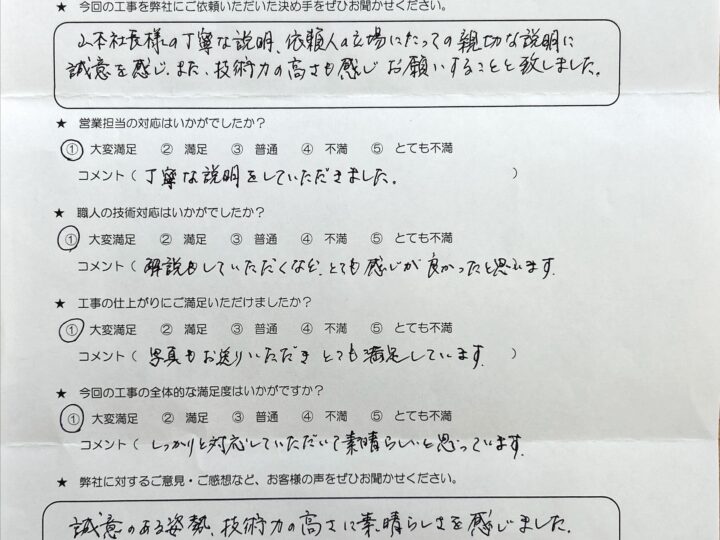 ★ 今回の工事を弊社にご依頼いただいた決め手をぜひお聞かせください。
山本社長様の丁寧な説明、依頼人の立場にたっての親切な説明に
誠意を感じ、また、技術力の高さも感じ お願いすることと致しました。
★ 営業担当の対応はいかがでしたか？
① 大変満足 ② 満足 ③ 普通 ④ 不満 ⑤ とても不満
コメント（ 丁寧な説明をしていただきました。 ）
★ 職人の技術対応はいかがでしたか？
① 大変満足 ② 満足 ③ 普通 ④ 不満 ⑤ とても不満
コメント（ 解説もしていただくなど、とても感じが良かったと思います。
★ 工事の仕上がりにご満足いただけましたか？
① 大変満足 ② 満足 ③ 普通 ④ 不満 ⑤ とても不満
コメント（ 写真もお送りいただき とても満足しています。 ）
★ 今回の工事の全体的な満足度はいかがですか？
① 大変満足 ② 満足 ③ 普通 ④ 不満 ⑤ とても不満
コメント（ しっかりと対応していただいて素晴らしいと思っています。
★ 弊社に対するご意見・ご感想など、お客様の声をぜひお聞かせください。
誠意のある姿勢、技術力の高さに素晴らしさを感じました。